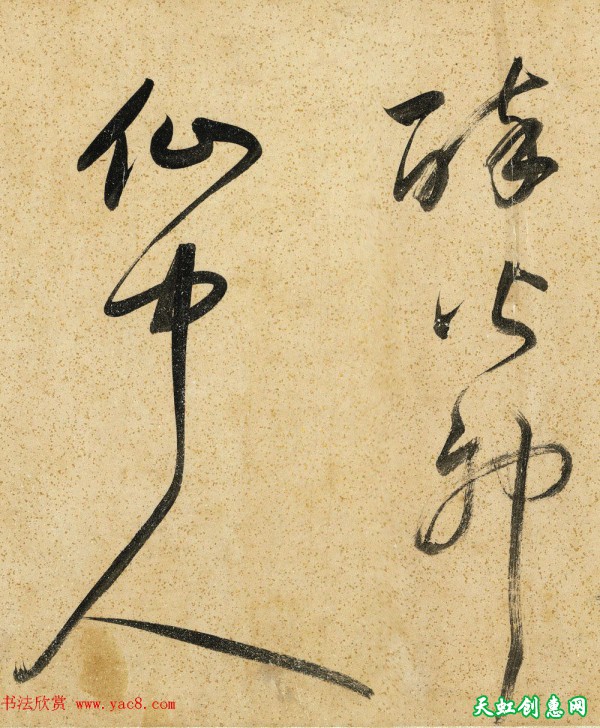 醉神
仙中人
书法欣赏 www.yac8.com
天虹创惠网